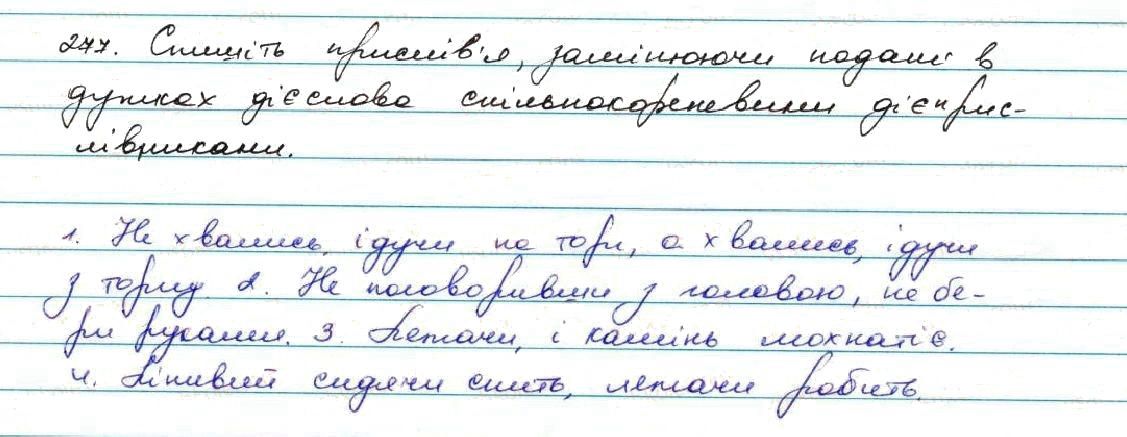 277. Спишіть прислів'я, замінюючи подані в
дужках дієслова спільнокореневими дієприс-
лівниками.
1. Не хвались, ідучи на торг, а хвались, ідучи
з торгу. 2. Не поговоривши з головою, не бе-
ри руками. 3. Лежачи, і камінь мохнатіє.
4. Лінивий сидячи спить, лежачи робить.